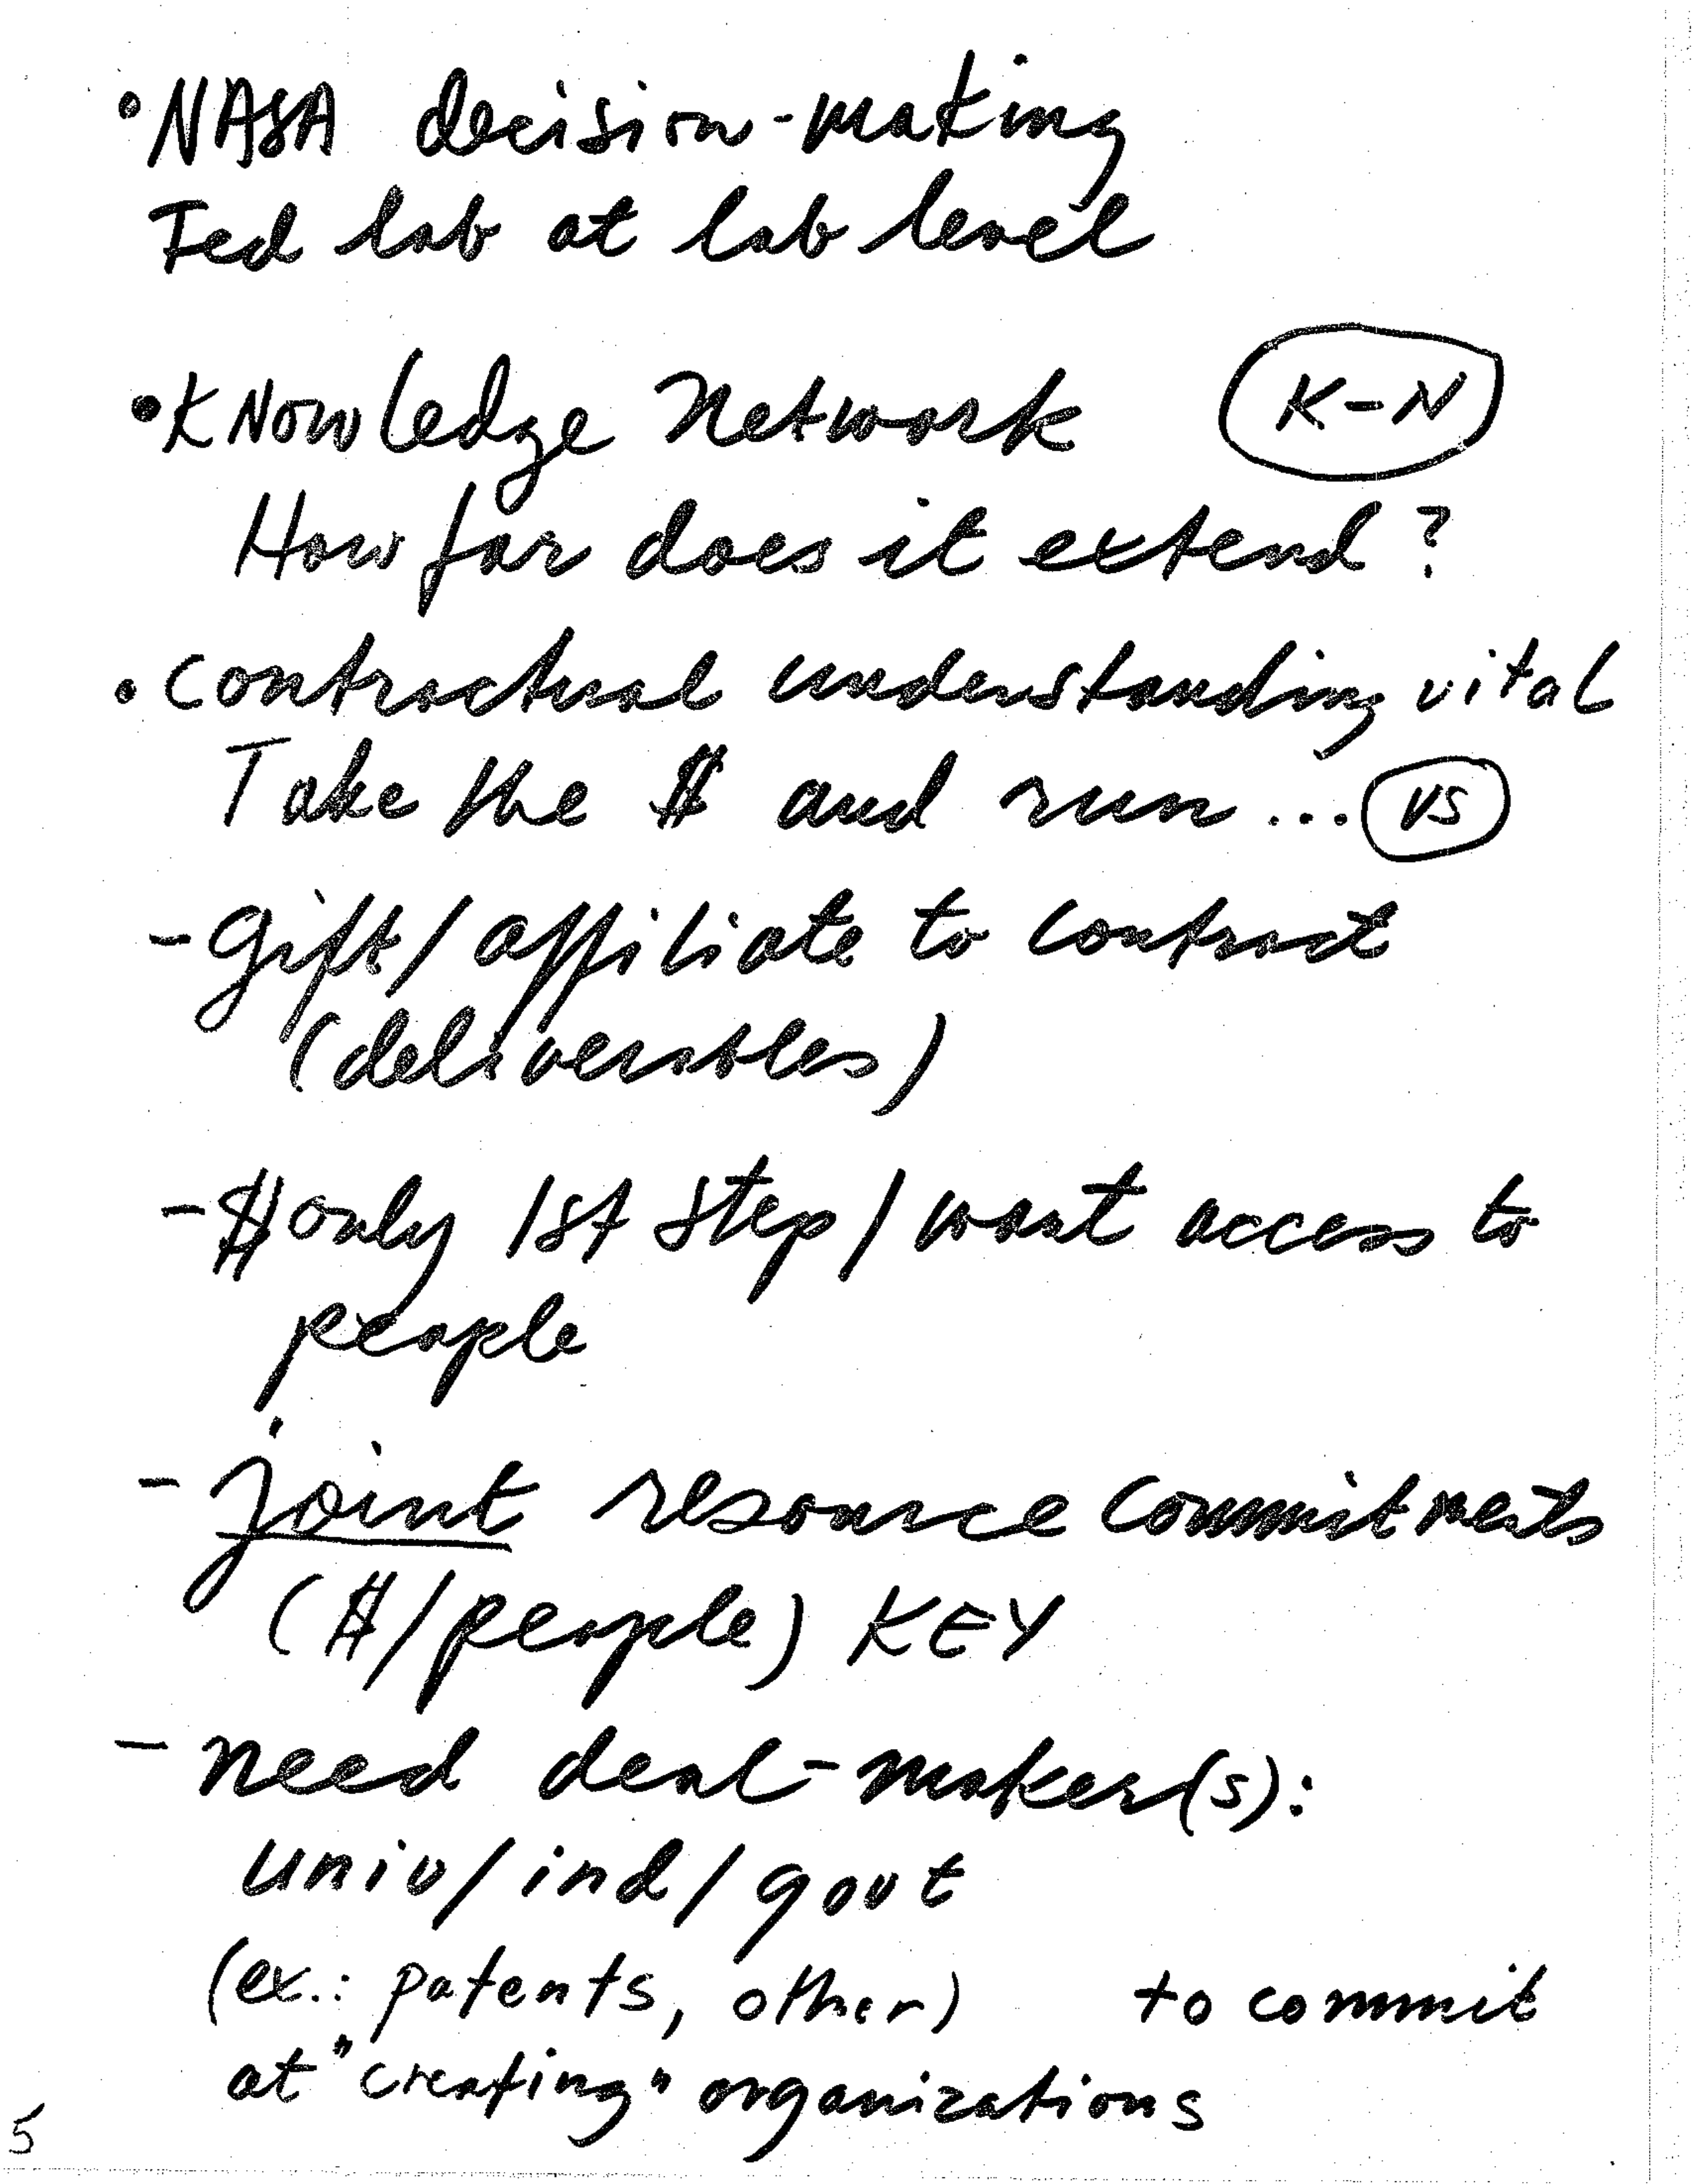 • NASA decision-making
Fed lab at lab level
• Knowledge Network K-N
How far does it extend?
• Contractual understanding vital
Take the $ and run... vs
- Gift/affiliate to contract
(deliverables)
- $ only 1st step/want access to
people
- joint resource commitments
($/people) KEY
- need deal-maker(s):
univ/ind/govt
(ex.: patents, other) to commit
at "creating" organizations
5